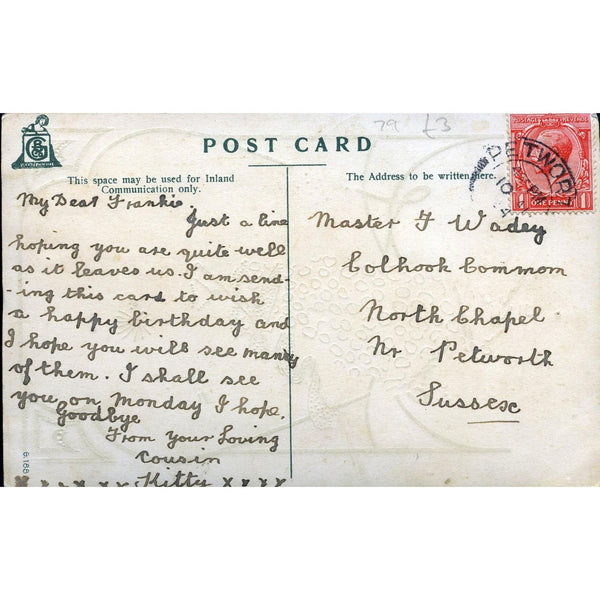 79 £3
POST CARD
This space may be used for Inland
Communication only.
The Address to be written here.
POSTAGE REVENUE
1 ONE PENNY 1
PETWORTH
10
My Dear Frankie,
Just a line
hoping you are quite well
as it leaves us. I am send-
-ing this card to wish
a happy birthday and
I hope you will see many
of them. I shall see
you on Monday I hope.
Goodbye
From your Loving
cousin
x x x x x Kitty x x x x
Master F Wadey
Colhook Common
North Chapel
Nr Petworth
Sussex